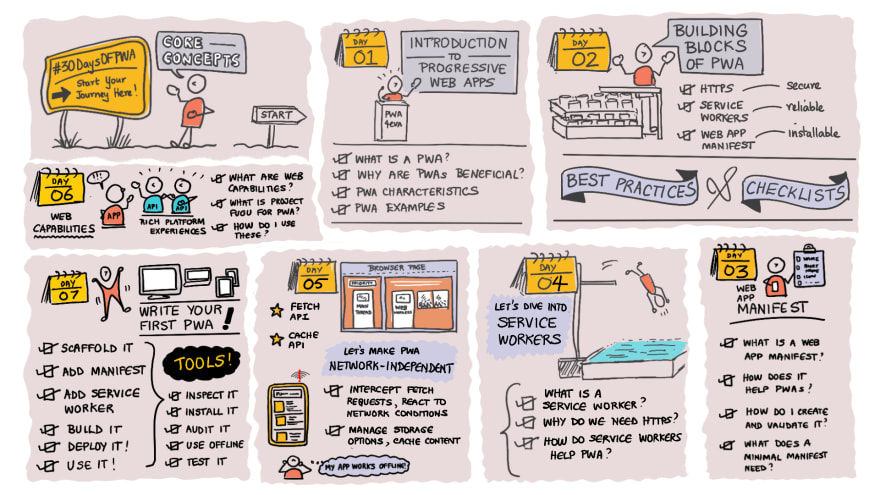 #30DaysOFPWA
Start Your
Journey Here!
CORE
CONCEPTS
START
DAY
01
INTRODUCTION
TO
PROGRESSIVE
WEB APPS
PWA
4EVA
WHAT IS A PWA?
WHY ARE PWAs BENEFICIAL?
PWA CHARACTERISTICS
PWA EXAMPLES
DAY
02
BUILDING
BLOCKS
OF PWA
HTTPS secure
SERVICE
WORKERS reliable
WEB APP
MANIFEST installable
BEST PRACTICES & CHECKLISTS
DAY
03
WEB
APP
MANIFEST
NAME
ICON
WHAT IS A WEB
APP MANIFEST?
HOW DOES IT
HELP PWAs?
HOW DO I CREATE
AND VALIDATE IT?
WHAT DOES A
MINIMAL MANIFEST
NEED?
DAY
04
LET'S DIVE INTO
SERVICE
WORKERS
WHAT IS A
SERVICE WORKER?
WHY DO WE NEED HTTPS?
HOW DO SERVICE WORKERS
HELP PWA?
DAY
05
BROWSER PAGE
PRIORITY
MAIN
THREAD
WEB
WORKERS
FETCH
API
CACHE
API
LET'S MAKE PWA
NETWORK-INDEPENDENT
INTERCEPT FETCH
REQUESTS, REACT TO
NETWORK CONDITIONS
MANAGE STORAGE
OPTIONS, CACHE CONTENT
MY APP WORKS OFFLINE!
DAY
06
WEB
CAPABILITIES
!!!
APP
API
API
RICH PLATFORM
EXPERIENCES
WHAT ARE WEB
CAPABILITIES?
WHAT IS PROJECT
FUGU FOR PWA?
HOW DO I USE
THESE?
DAY
07
WRITE YOUR
FIRST PWA!
SCAFFOLD IT
ADD MANIFEST
ADD SERVICE
WORKER
BUILD IT
DEPLOY IT!
USE IT!
TOOLS!
INSPECT IT
INSTALL IT
AUDIT IT
USE OFFLINE
TEST IT